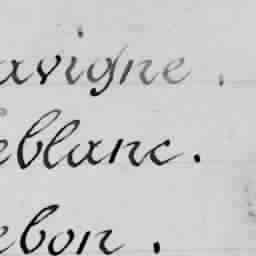 avigne .
eblanc .
ebon .